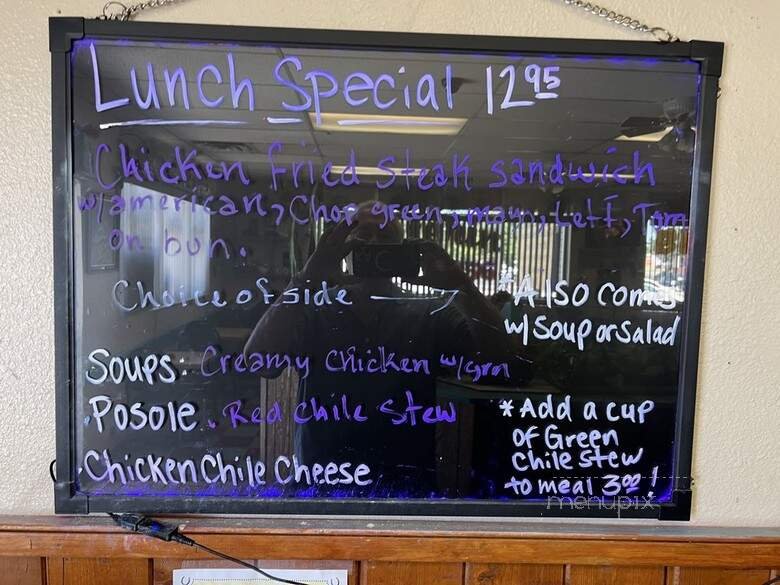 Lunch Special 12.95
Chicken fried steak sandwich
w/american, Chop green, mayo, Let, Tom
on bun.
Choice of side →
*Also comes
w/soup or salad
Soups: Creamy Chicken w/grn
.Posole .Red Chile Stew
.Chicken Chile Cheese
*Add a cup
of Green
Chile stew
to meal 3.00!
menupix